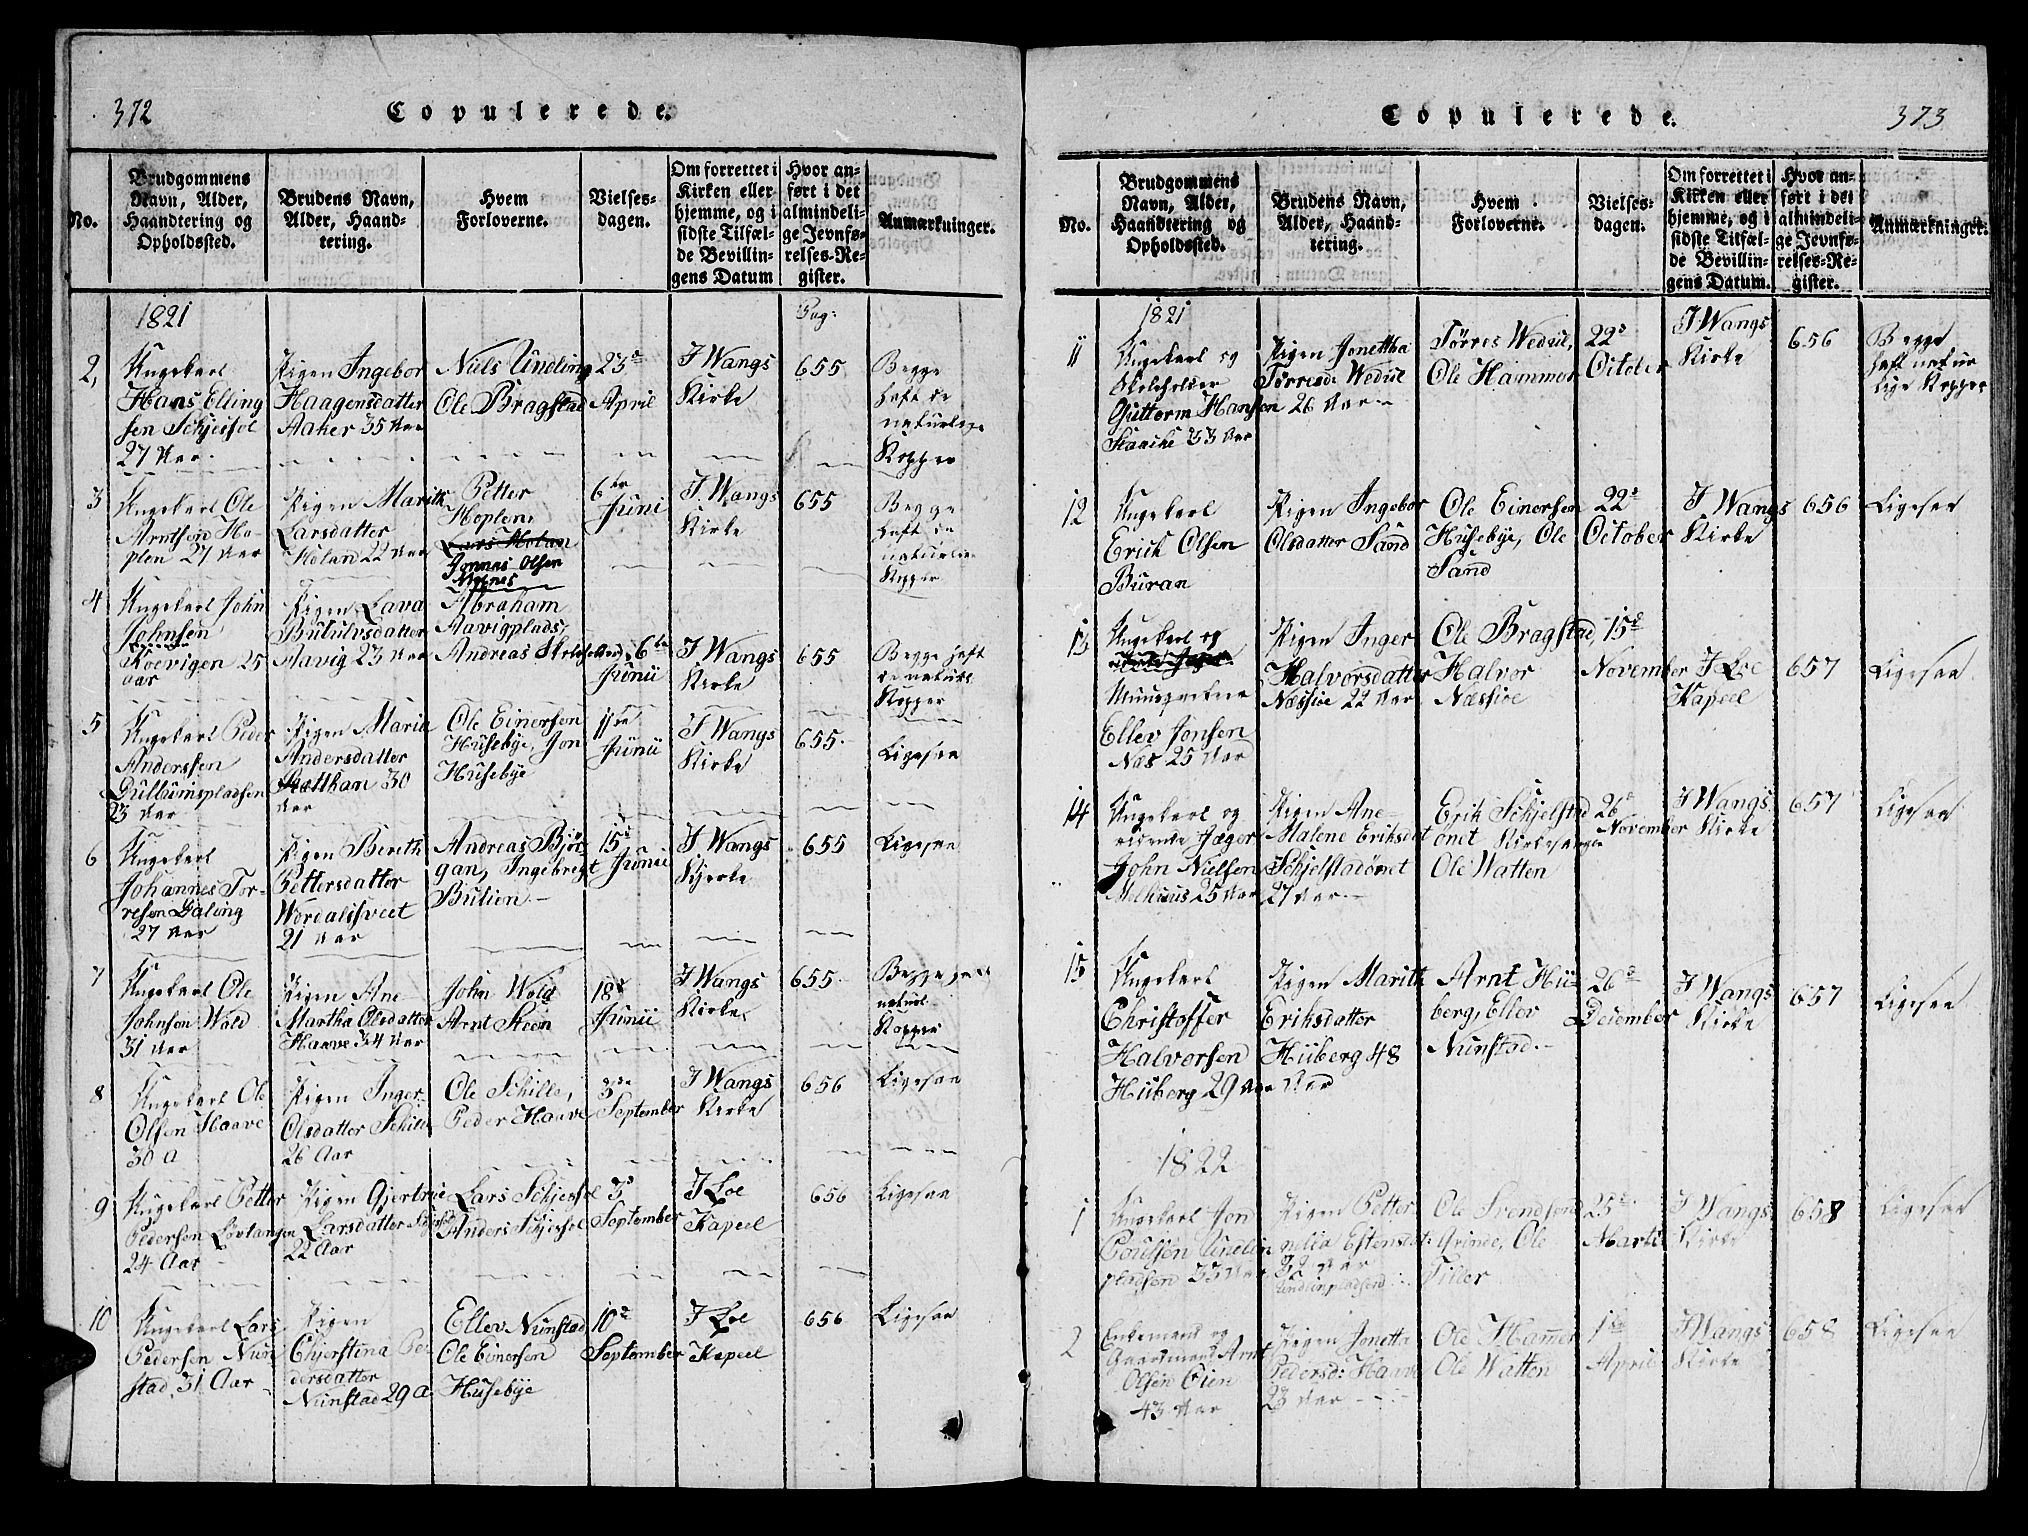 372
Copulerede.
No.
Brudgommens
Navn, Alder,
Haandtering og
Opholdssted.
Brudens Navn,
Alder, Haand-
tering.
Hvem
Forloverne.
Vielses-
dagen.
Om forrettet i
Kirken eller
hjemme, og i
sidste Tilfæl-
de Bevillin-
gens Datum
Hvor an-
ført i det
almindeli-
ge Jevnfø-
relses-Re-
gister.
Anmærkninger.
1821
Pag:
2,
Ungekarl
Hans Elling
sen Schjesfol
27 Aar.
Pigen Ingebor
Haagensdatter
Aaker 35 Aar
Niils Undling
Ole Bragstad
23d
April
I Wangs
Kirke
655
Begge
haft de
naturlige
Kopper
3
Ungekarl Ole
Arntsen Ho-
plen 27 Aar
Pigen Marith
Larsdatter
Molan 22 Aar
Petter
Hoplen,
Lars Molan
Jonnes Olsen
6te
Juni
I. Wangs
Kirke
655
Begge
haft de
naturlige
Kopper
4
Ungekarl John
Johnsen
Koevigen 25
Aar
Pigen Lava
Aavig 23 Aar
Abraham
Aavigplads,
Andreas
6te
Junii
I Wangs
Kirke
655
Begge haft
de naturl
Kopper
5
Ungekarl Peder
Anderssen
Gullaumspladsen
23 Aar
Pigen Maria
Andersdatter
Katthan 30
Aar
Ole Einersen
Husebye, Jon
Husebye
11te
Junii
I Wangs
Kirke
655.
Ligesaa
6
Ungekarl
Johannes Tor-
resen Galing
27 Aar
Pigen Berith
Pettersdatter
Wordalisveet
21 Aar
Andreas Bjør
gan, Ingebregt
Butien.-
15d
Junii
I Wangs
Kjerke
655
Ligesaa
7
Ungekarl Ole
Johnson Wold
31 Aar
Pigen Ane
Martha Olsdatter
Haave 34 Aar
John Wold
Arnt Steen
18d
Junii
I Wangs
Kirke,
655.
Begge haft
naturl.
Kopper
8
Ungekarl Ole
Olsen Haave
30 A
Pigen Inger
Olsdatter Schill
26 Aar
Ole Schille,
Peder Haave
3de
September
I Wangs
Kirke
656
Ligesaa
9
Ungekarl Petter
Pedersen Lövtangen
24 Aar
Pigen Gjertrue
Larsdatter
22 Aar
Lars Schjesfol
Anders Schjesfol
3d
September
I Loe
Kapeel
656
Ligesaa
10
Ungekarl Lars
Pedersen Nün
stad, 31 Aar
Pigen
Chjerstina Pe
dersdatter
Nünstad 29 A
Ellev Nünstad
Ole Einersen
Husebye
10d
September
I Loe
Kapeel
656
Ligesaa
Copulerede.
373
No.
Brudgommens
Navn, Alder,
Haandtering og
Opholdssted.
Brudens Navn,
Alder, Haand-
tering.
Hvem
Forloverne.
Vielses-
dagen.
Om forrettet i
Kirken eller
hjemme, og i
sidste Tilfæl-
de Bevillin-
gens Datum.
Hvor an-
ført i det
almindeli-
ge Jevnfø-
relses-Re-
gister.
Anmærkninger.
1821
11
Ungekarl og
Guttorm Hansen
33 Aar
Pigen Jonettha
Törresd: Wedul
26 Aar
Törres Wedul,
Ole Hammer
22d
October
I Wangs
Kirke
656
Begge
haft natur
lige Kopper
12
Ungekarl
Erich Olsen
Buran
Pigen Ingebor
Olsdatter Sand
Ole Einersen
Husebye, Ole
Sand
22d
October
I Wangs
Kirke
656
Ligesaa
13
Ungekarl og
Ellev Jonsen
Næs 25 Aar
Pigen Inger
Halvorsdatter
Næssioe 22 Aar
Ole Bragstad,
Halvor
Næssioe
15d
November
I Loe
Kapeel
657
Ligesaa
14
Ungekarl og
Jæger
John Nielsen
Melhuus 25 Aar
Pigen Ane
Malene Eriksdat
Schjelstadönet
27 Aar
Erik Schjelstad
onet
Ole Watten
26d
November
I Wangs
Kirke
657
Ligesaa
15
Ungekarl
Christoffer
Halvorsen
Huberg 29 Aar
Pigen Marith
Eriksdatter
Hüberg 48
Aar
Arnt Hü-
berg, Ellev
Nunstad.-
26d
December
I Wangs
Kirke
657
Ligesaa
1822
1
Ungekarl Jon
pladsen 35 Aar
Pigen Petter
nelia Estensdat:
32 Aar
Ole Svendsen
Grinde, Ole
Tiller
25d
Marti
I Wangs
Kirke
658
Ligesaa
2
Enkemand og
Gaardmand Arnt
Olsen Eien
43 Aar
Pigen Jonetta
Pedersd: Haave
23 Aar
Ole Hammer
Ole Watten
1ste
April
I Wangs
Kirke
658
Ligesaa